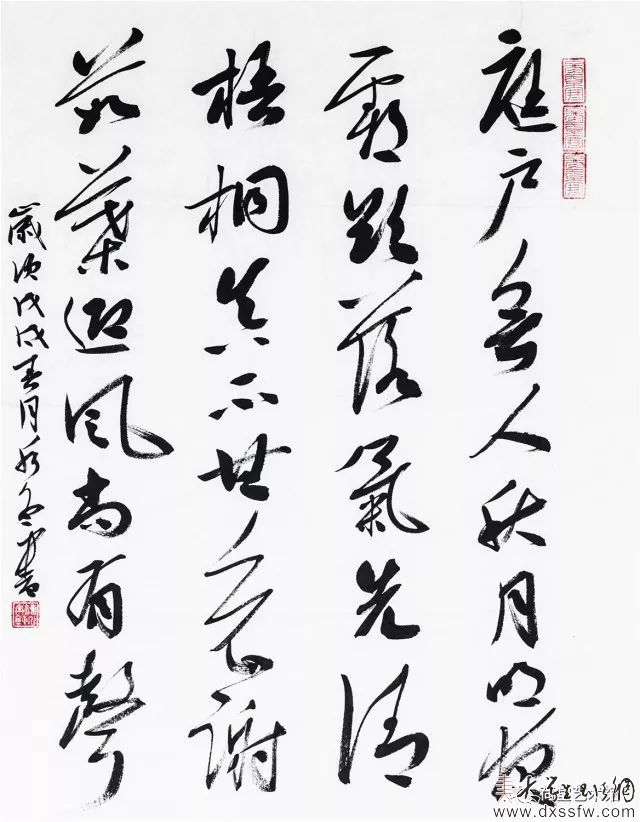 庭户無人秋月明夜
霜欲落氣先清
梧桐真不甘衰謝
數葉迎风尚有聲
歲次戊戌春月書
www.dxssfw.com